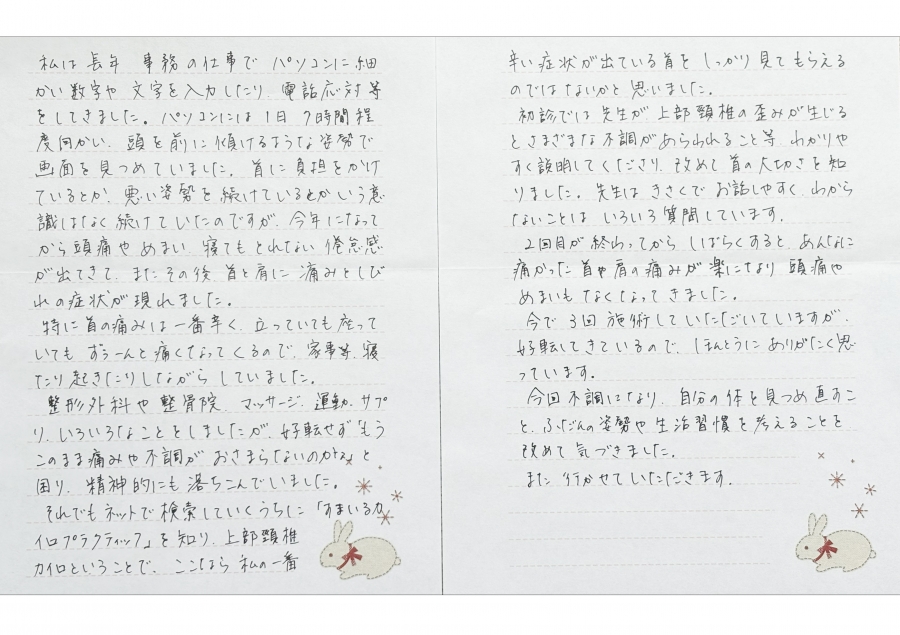 私は長年 事務の仕事で パソコンに細
かい数字や 文字を入力したり、電話応対等
をしてきました。パソコンには1日 7時間程
度向かい、頭を前に傾けるような姿勢で
画面を見つめていました。首に負担をかけ
ているとか、悪い姿勢を続けているとかいう意
識はなく続けていたのですが、今年になって
から頭痛や めまい、寝てもとれない 倦怠感
が出てきて、またその後 首と肩に 痛みとしび
れの症状が現れました。
特に首の痛みは一番辛く、立っていても座って
いても ずぅーんと痛くなってくるので、家事等、寝
たり起きたりしながら していました。
整形外科や 整骨院、マッサージ、運動、サプ
リ、いろいろなことをしましたが、好転せず「もう
このまま痛みや不調が おさまらないのかな」と
困り、精神的にも 落ちこんでいました。
それでもネットで 検索していくうちに「すまいるカ
イロプラクティック」を知り、上部頸椎
カイロということで、ここなら 私の一番
辛い症状が出ている首を しっかり見てもらえる
のではないかと思いました。
初診では 先生が、上部頸椎の歪みが生じる
とさまざまな不調があらわれること等、わかりや
すく説明してくださり、改めて首の大切さを知
りました。先生は きさくで お話しやすく、わから
ないことは いろいろ 質問しています。
2回目が 終わってから しばらくすると、あんなに
痛かった 首や肩の痛みが 楽になり 頭痛や
めまいも なくなって きました。
今で 3回 施術していただいていますが、
好転してきているので、ほんとうに ありがたく思
っています。
今回不調になり、自分の体を見つめ直すこ
と、ふだんの姿勢や生活習慣を考えることを
改めて気づきました。
また 行かせていただきます。